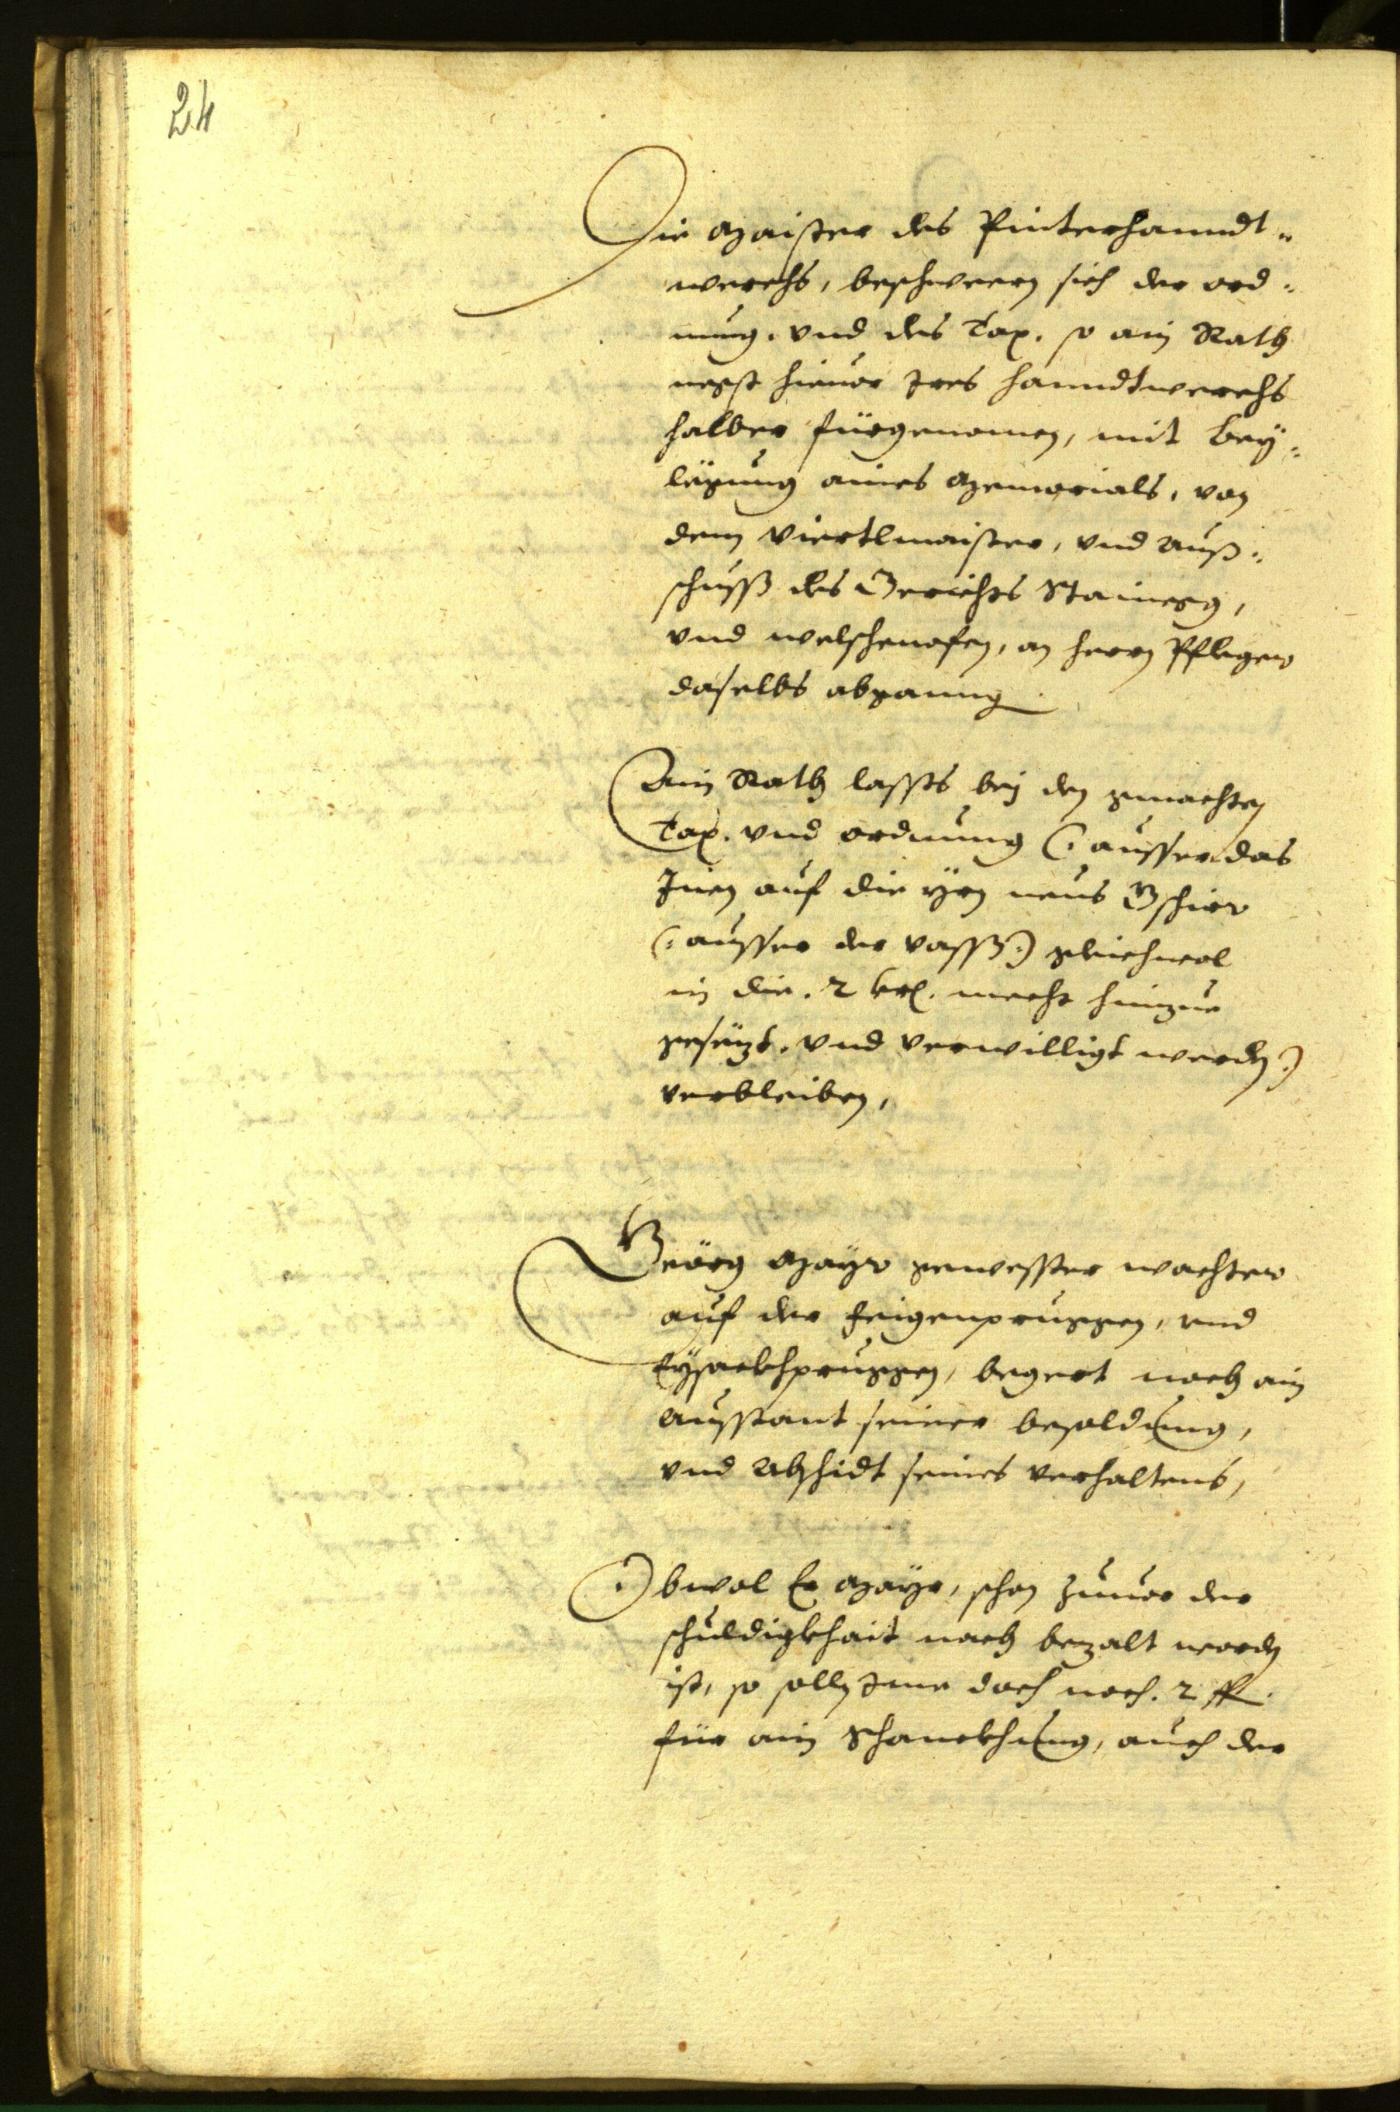 24
Die Maister des Pinterhanndt-
werchs, beschwern sich der ord-
nung, vnd des Tax, so ain Rath
negst hieuor Ires hanndtwerchs
halber fürgenomen, mit Bey-
legung aines Memorials, von
dem Viertlmaister, vnd Auß-
schuss des Gerichts Stainegg,
vnd welschenofen, an herrn Pfleger
daselbs abganng.
Ain Rath lassts bey den gemachten
Tax, vnd ordnung (: ausser das
Inen auf die yrn neus Gschirr
(: ausser der vass:) gleichwol
in die 2 krl. mecht hinzue
gesezt, vnd verwilligt werden:)
verbleiben,
Geörg Mayr gewesster wachter
auf der Feigenpruggen, vnd
Eysackhpruggen, begert noch ain
ausstant seiner besoldung,
vnd Abschidt seines verhaltens,
Obwol Er Mayr, schon zuuor der
schuldigkhait nach bezalt worden
ist, so sollen Ime doch noch 2 fl.
für ain Schanckhung, auch der